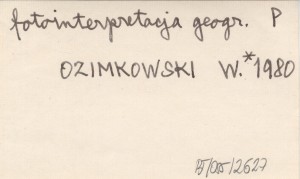 fotointerpretacja geogr. P
OZIMKOWSKI W.*1980